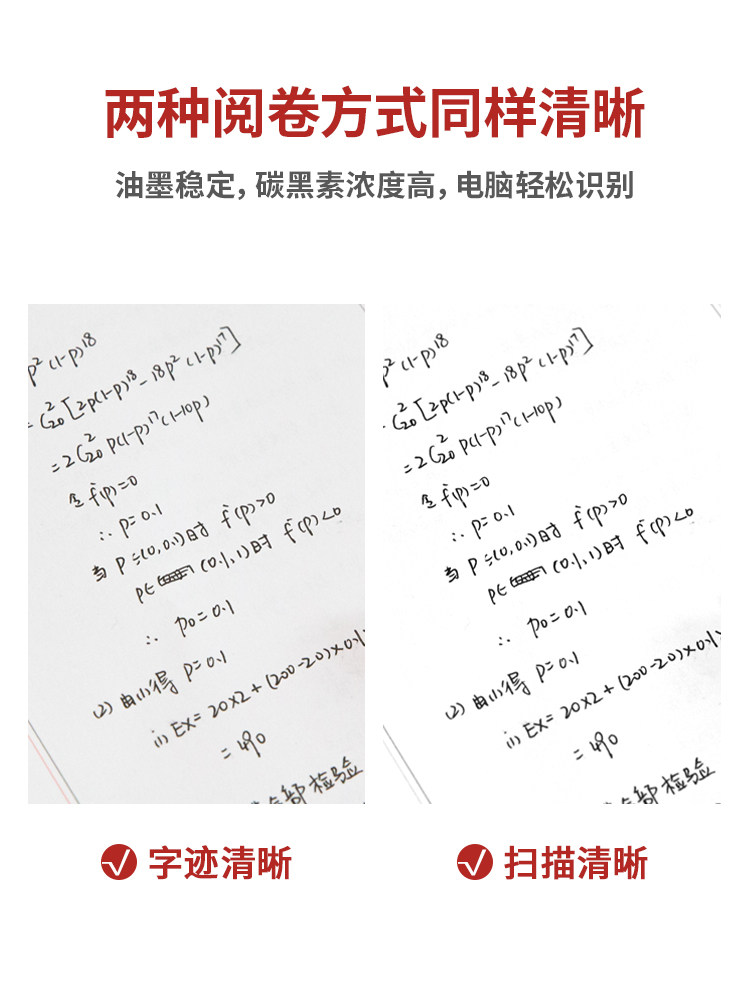 两种阅卷方式同样清晰
油墨稳定,碳黑素浓度高,电脑轻松识别
p²(1-p)¹⁸
= C²₂₀[2p(1-p)¹⁸-18p²(1-p)¹⁷]
=2C²₂₀ p(1-p)¹⁷(1-10p)
令 f'(p)=0
∴ p=0.1
当 P=(0,0.1)时 f'(p)>0
p∈ (0.1,1)时 f'(p)<0
∴ p₀=0.1
(2) 由(1)得 p=0.1
(i) EX= 20×2+(200-20)×0.1×
=490
部检验
p²(1-p)¹⁸
C²₂₀[2p(1-p)¹⁸-18p²(1-p)¹⁷]
=2C²₂₀ p(1-p)¹⁷(1-10p)
令 f'(p)=0
∴ p=0.1
当 P=(0,0.1)时 f'(p)>0
p∈ (0.1,1)时 f'(p)<0
∴ p₀=0.1
(2) 由(1)得 p=0.1
(i) EX= 20×2+(200-20)×0.1×
=490
部检验
字迹清晰
扫描清晰